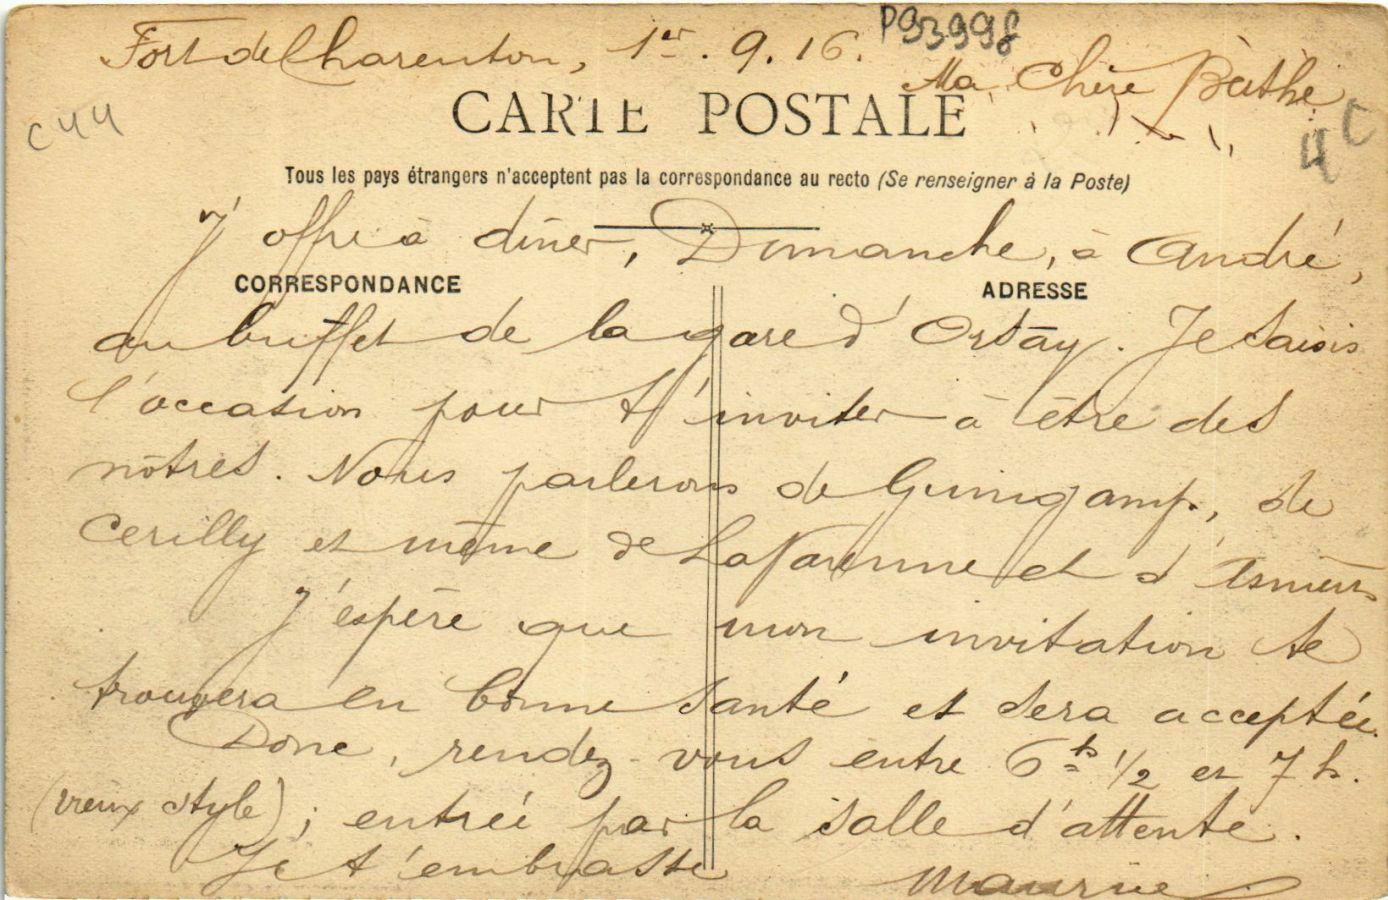 P93998
Fort de Charenton, 1er. 9. 16.
Ma Chère Berthe
C44
CARTE POSTALE
4C
Tous les pays étrangers n'acceptent pas la correspondance au recto (Se renseigner à la Poste)
J'offre à dîner, Dimanche, à André,
CORRESPONDANCE
ADRESSE
au buffet de la gare d'Orsay. Je saisis
l'occasion pour t'inviter à être des
nôtres. Nous parlerons de Guingamp, de
Cerilly et même de La Varenne et d'
J'espère que mon invitation te
trouvera en bonne santé et sera acceptée.
Donc, rendez-vous entre 6h 1/2 et 7 h.
(vieux style); entrée par la salle d'attente.
Je t'embrasse
Maurice